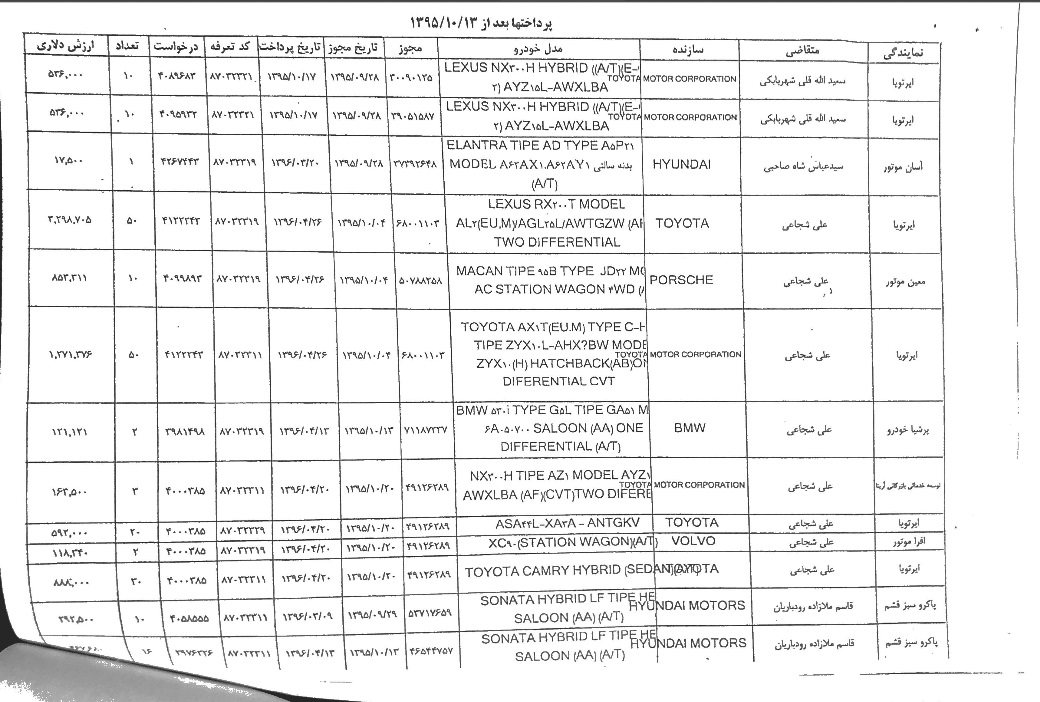 پرداختها بعد از ۱۳۹۵/۱۰/۱۳
نمایندگی متقاضی سازنده مدل خودرو مجوز تاریخ مجوز تاریخ پرداخت کد تعرفه درخواست تعداد ارزش دلاری
ایرتویا سعید الله قلی شهربابکی TOYOTA MOTOR CORPORATION
LEXUS NX۳۰۰H HYBRID ((A/T)(E-
۲) AYZ۱۵L-AWXLBA
۳۰۰۹۰۱۲۵ ۱۳۹۵/۰۹/۲۸ ۱۳۹۵/۱۰/۱۷ ۸۷۰۳۲۳۲۱ ۴۰۸۹۶۸۳ ۱۰ ۵۳۶,۰۰۰
ایرتویا سعید الله قلی شهربابکی TOYOTA MOTOR CORPORATION
LEXUS NX۳۰۰H HYBRID ((A/T)(E-
۲) AYZ۱۵L-AWXLBA
۳۹۰۵۱۵۸۷ ۱۳۹۵/۰۹/۲۸ ۱۳۹۵/۱۰/۱۷ ۸۷۰۳۲۳۲۱ ۴۰۹۵۹۳۲ ۱۰ ۵۳۶,۰۰۰
آسان موتور سیدعباس شاه صاحبی HYUNDAI
ELANTRA TIPE AD TYPE A۵P۲۱
MODEL A۶۲AX۱،A۶۲AY۱ بدنه سالتی
(A/T)
۳۷۳۹۲۶۴۸ ۱۳۹۵/۰۹/۲۸ ۱۳۹۶/۰۳/۲۰ ۸۷۰۳۲۳۱۹ ۴۲۶۷۴۴۳ ۱ ۱۷,۵۰۰
ایرتویا علی شجاعی TOYOTA
LEXUS RX۲۰۰T MODEL
AL۲(EU,M)/AGL۲۵L/AWTGZW (AF
TWO DIFFERENTIAL
۶۸۰۰۱۱۰۳ ۱۳۹۵/۱۰/۰۴ ۱۳۹۶/۰۴/۲۶ ۸۷۰۳۲۳۱۹ ۴۱۲۲۲۴۳ ۵۰ ۲,۲۹۸,۷۰۵
معین موتور علی شجاعی PORSCHE
MACAN TIPE ۹۵B TYPE JD۲۲ MO
AC STATION WAGON ۴WD (A
۵۰۷۸۸۲۵۸ ۱۳۹۵/۱۰/۰۴ ۱۳۹۶/۰۴/۲۶ ۸۷۰۳۲۳۱۹ ۴۰۹۹۸۹۳ ۱۰ ۸۵۳,۳۱۱
ایرتویا علی شجاعی TOYOTA MOTOR CORPORATION
TOYOTA AX۱T(EU.M) TYPE C-H
TIPE ZYX۱۰L-AHX?BW MODE
ZYX۱۰(H) HATCHBACK(AB)ON
DIFERENTIAL CVT
۶۸۰۰۱۱۰۳ ۱۳۹۵/۱۰/۰۴ ۱۳۹۶/۰۴/۲۶ ۸۷۰۳۲۲۱۱ ۴۱۲۲۲۴۳ ۵۰ ۱,۲۷۱,۳۷۶
پرشیا خودرو علی شجاعی BMW
BMW ۵۳۰i TYPE G۵L TIPE GA۵۱ M
۶A-۵۰۷۰۰ SALOON (AA) ONE
DIFFERENTIAL (A/T)
۷۱۱۸۷۲۳۷ ۱۳۹۵/۱۰/۱۳ ۱۳۹۶/۰۴/۱۳ ۸۷۰۳۲۳۱۹ ۳۹۸۱۴۹۸ ۲ ۱۲۱,۱۲۱
توسعه خدماتی بازرگانی آریتا علی شجاعی TOYOTA MOTOR CORPORATION
NX۳۰۰H TIPE AZ۱ MODEL AYZ۱
AWXLBA (AF)(CVT)TWO DIFERE
۴۹۱۲۶۲۸۹ ۱۳۹۵/۱۰/۲۰ ۱۳۹۶/۰۴/۲۰ ۸۷۰۳۲۳۱۱ ۴۰۰۰۳۸۵ ۳ ۱۶۲,۵۰۰
ایرتویا علی شجاعی TOYOTA ASA۴۴L-XA۳A - ANTGKV ۴۹۱۲۶۲۸۹ ۱۳۹۵/۱۰/۲۰ ۱۳۹۶/۰۴/۲۰ ۸۷۰۳۲۳۲۹ ۴۰۰۰۳۸۵ ۲۰ ۵۹۲,۰۰۰
افرا موتور علی شجاعی VOLVO XC۹۰(STATION WAGON)(A/T) ۴۹۱۲۶۲۸۹ ۱۳۹۵/۱۰/۲۰ ۱۳۹۶/۰۴/۲۰ ۸۷۰۳۲۳۱۹ ۴۰۰۰۳۸۵ ۲ ۱۱۸,۲۴۰
ایرتویا علی شجاعی TOYOTA TOYOTA CAMRY HYBRID (SEDAN)(A/T) ۴۹۱۲۶۲۸۹ ۱۳۹۵/۱۰/۲۰ ۱۳۹۶/۰۴/۲۰ ۸۷۰۳۲۳۱۱ ۴۰۰۰۳۸۵ ۳۰ ۸۸۸,۰۰۰
پاکرو سبز قشم قاسم ملازاده رودباریان HYUNDAI MOTORS
SONATA HYBRID LF TIPE HE
SALOON (AA) (A/T)
۵۳۷۱۷۶۵۹ ۱۳۹۵/۰۹/۲۹ ۱۳۹۶/۰۳/۰۹ ۸۷۰۳۲۳۱۱ ۴۰۵۸۵۵۵ ۱۰ ۲۹۲,۵۰۰
پاکرو سبز قشم قاسم ملازاده رودباریان HYUNDAI MOTORS
SONATA HYBRID LF TIPE HE
SALOON (AA) (A/T)
۴۶۵۴۴۷۵۷ ۱۳۹۵/۱۰/۱۳ ۱۳۹۶/۰۴/۱۳ ۸۷۰۳۲۳۱۱ ۳۹۷۶۳۲۶ ۱۶